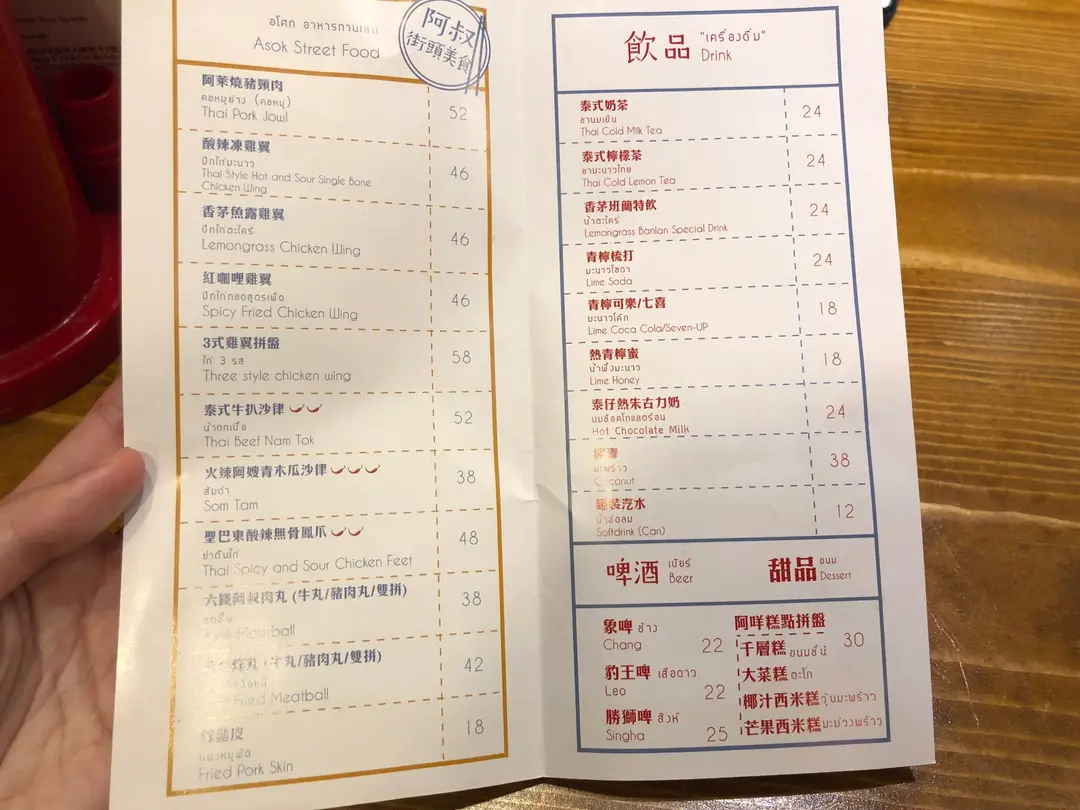 อโศก อาหารทานเล่น
Asok Street Food
阿叔
街頭美食
阿萊燒豬頸肉
คอหมูย่าง (คอหมู)
Thai Pork Jowl
52
酸辣凍雞翼
ปีกไก่มะนาว
Thai Style Hot and Sour Single Bone
Chicken Wing
46
香茅魚露雞翼
ปีกไก่ตะไคร้
Lemongrass Chicken Wing
46
紅咖哩雞翼
ปีกไก่ทอดสูตรเผ็ด
Spicy Fried Chicken Wing
46
3式雞翼拼盤
ไก่ 3 รส
Three style chicken wing
58
泰式牛扒沙律
น้ำตกเนื้อ
Thai Beef Nam Tok
52
火辣阿嫂青木瓜沙律
ส้มตำ
Som Tam
38
聖巴東酸辣無骨鳳爪
ยำตีนไก่
Thai Spicy and Sour Chicken Feet
48
六錢阿叔肉丸 (牛丸/豬肉丸/雙拼)
Meatball
38
炸丸 (牛丸/豬肉丸/雙拼)
Fried Meatball
42
炸豬皮
Fried Pork Skin
18
飲品 "เครื่องดื่ม"
Drink
泰式奶茶
ชานมเย็น
Thai Cold Milk Tea
24
泰式檸檬茶
ชามะนาวไทย
Thai Cold Lemon Tea
24
香茅班蘭特飲
น้ำตะไคร้
Lemongrass Banlan Special Drink
24
青檸梳打
มะนาวโซดา
Lime Soda
24
青檸可樂/七喜
มะนาวโค้ก
Lime Coca Cola/Seven-UP
18
熱青檸蜜
น้ำผึ้งมะนาว
Lime Honey
18
泰仔熱朱古力奶
นมช็อคโกแลตร้อน
Hot Chocolate Milk
24
椰青
มะพร้าว
Coconut
38
罐裝汽水
น้ำอัดลม
Softdrink (Can)
12
啤酒 เบียร์
Beer
甜品 ขนม
Dessert
象啤 ช้าง
Chang
22
豹王啤 เสือดาว
Leo
22
勝獅啤 สิงห์
Singha
25
阿咩糕點拼盤
30
千層糕 ขนมชั้น
大菜糕 ตะโก
椰汁西米糕 วุ้นมะพร้าว
芒果西米糕 มะม่วงพร้าว